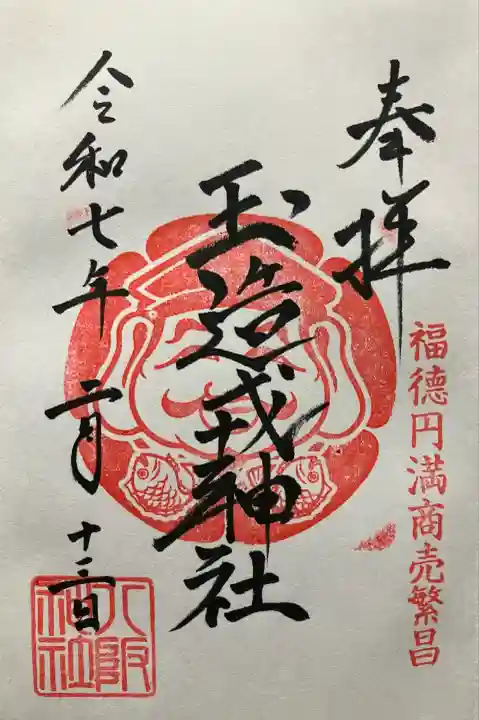 奉拝
福徳円満商売繁昌
玉造戎神社
令和七年 二月 十三日
八阪神社